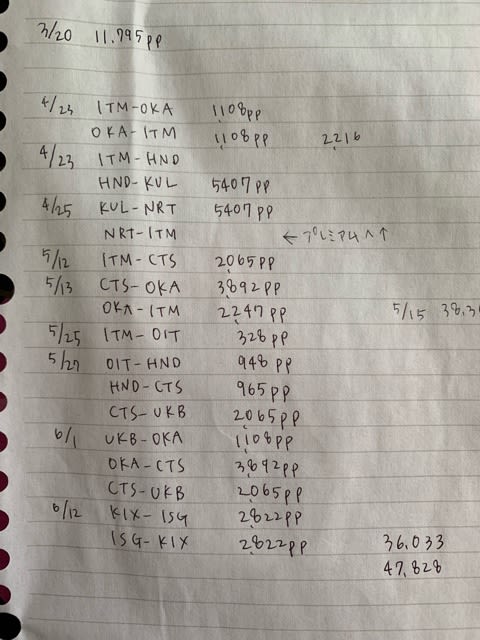 3/20 11.795pp
4/23 ITM-OKA 1,108pp
OKA-ITM 1,108pp 2,216
4/23 ITM-HND
HND-KUL 5407pp
4/25 KUL-NRT 5407pp
NRT-ITM ←プレミアムへ↑
5/12 ITM-CTS 2,065pp
5/13 CTS-OKA 3,892pp
OKA-ITM 2,247pp 5/15 38,3
5/25 ITM-OIT 328pp
5/27 OIT-HND 948pp
HND-CTS 965pp
CTS-UKB 2,065pp
6/1 UKB-OKA 1,108pp
OKA-CTS 3,892pp
CTS-UKB 2,065pp
6/12 KIX-ISG 2,822pp
ISG-KIX 2,822pp 36,033
47,828